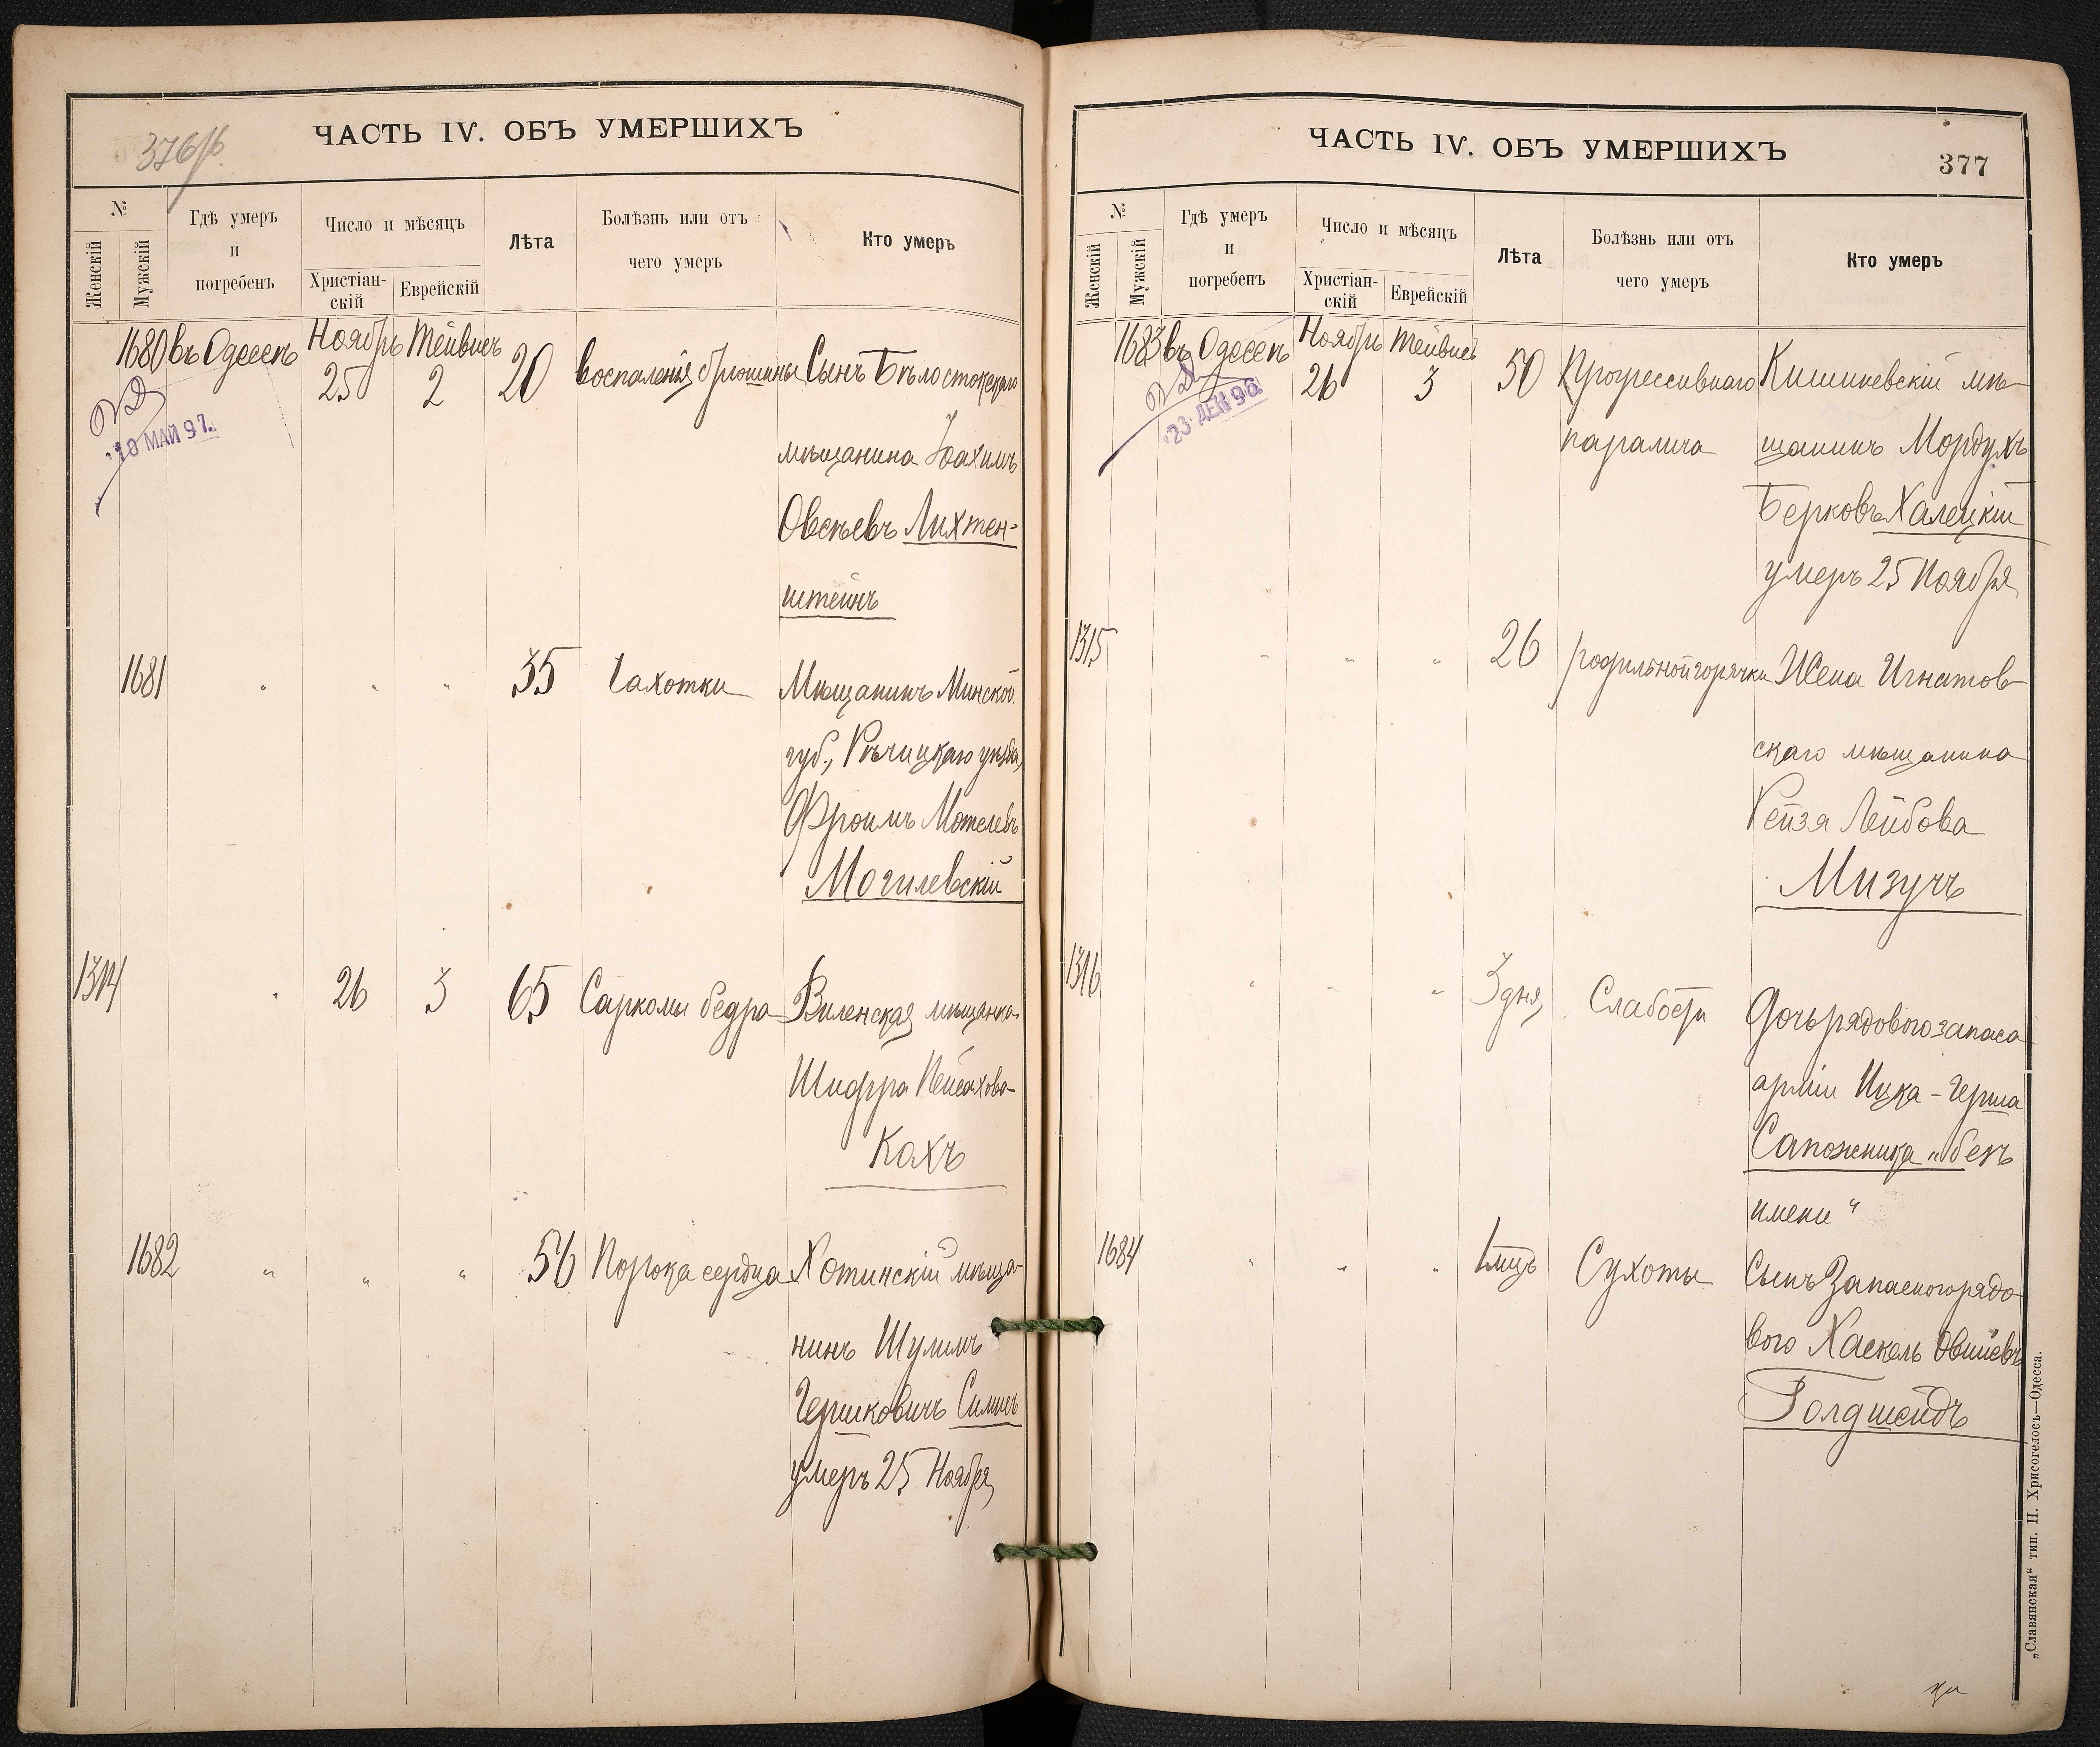 376/б
ЧАСТЬ IV. ОБЪ УМЕРШИХЪ
№
Женскій
Мужскій
Гдѣ умеръ
и
погребенъ
Число и мѣсяцъ
Христіан-
скій
Еврейскій
Лѣта
Болѣзнь или отъ
чего умеръ
Кто умеръ
1680 въ Одессѣ Ноябрь 25 Тейвисъ 2 20 воспаленія брюшины Сынъ Бѣлостокскаго
10 МАЙ 97.
мѣщанина Іоахимъ
Овсѣевъ Лихтен-
штейнъ
1681 " " " 35 Чахотки Мѣщанинъ Минской
губ., Рѣчицкаго уѣзда,
Фроимъ Мотелевъ
Могилевскій
1314 " 26 3 65 Саркомы бедра Виленская мѣщанка
Шифра Пейсахова
Кахъ
1682 " " " 56 Порока сердца Хотинскій мѣща-
нинъ Шулимъ
Гершковичъ
умеръ 25 Ноября
ЧАСТЬ IV. ОБЪ УМЕРШИХЪ
377
№
Женскій
Мужскій
Гдѣ умеръ
и
погребенъ
Число и мѣсяцъ
Христіан-
скій
Еврейскій
Лѣта
Болѣзнь или отъ
чего умеръ
Кто умеръ
1683 въ Одессѣ Ноябрь 26 Тейвисъ 3 50 Прогрессивнаго Кишиневскій мѣ-
23 ДЕК 96
паралича щанинъ Мордухъ
Берковъ Халецкій
умеръ 25 Ноября
1315 " " " 26 родильной горячки Жена Игнатов-
скаго мѣщанина
Рейзя Лейбова
Мизучъ
1316 " " " 3 дня Слабости Дочь рядового запаса
арміи Ицка-Герша
Сапожника "безъ
имени"
1684 " " " 1 мцъ Сухоты Сынъ Запасного рядо
вого Хаскель Овшіевъ
Голдшейдъ
„Славянская“ тип. Н. Хрисогелосъ—Одесса.